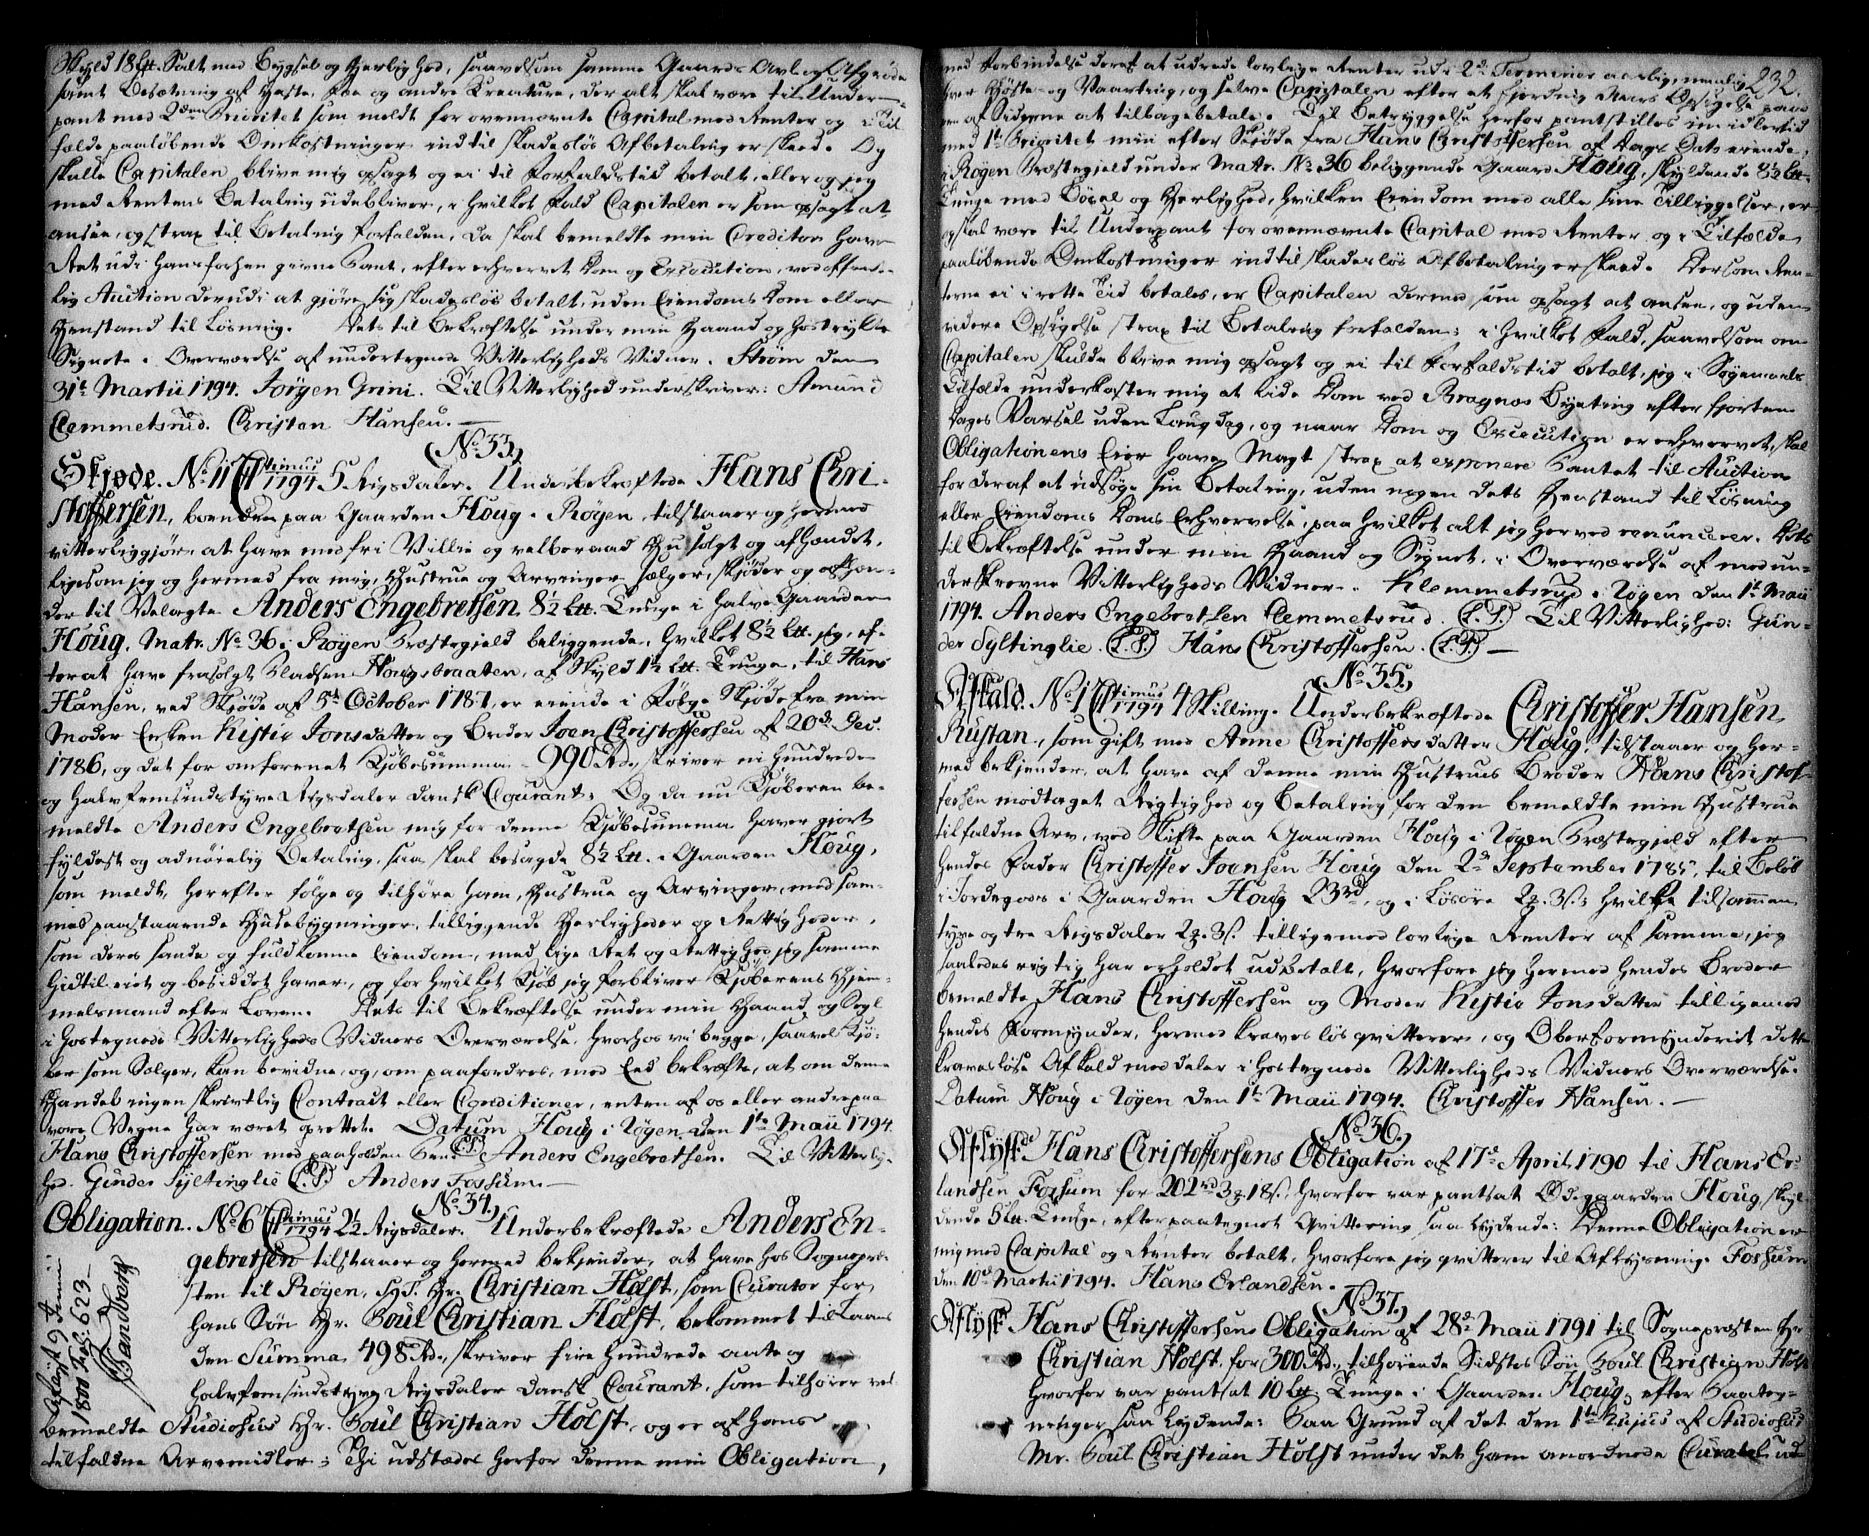 Skyld 18 Lt. Salt med Bygsel og Herlighed, saavelsom samme Gaards Avl og Afgrøde
samt Besætning af Heste, Fæe og andre Kreature, der alt skal være til Under-
pant med 2den Prioritet som meldt for ovennævnte Capital med Renter og i Til-
fælde paaløbende Omkostninger indtil skadesløs Afbetaling er skeed. Og
skulle Capitalen blive mig opsagt og ei til Forfaldstid betalt, eller og jeg
med Rentens Betaling udebliver, i hvilket Fald Capitalen er som opsagt at
ansee, og strax til Betaling forfalden, da skal bemeldte min Creditor have
Ret udi hans forhen givne Pant, efter erhvervet Dom og Execution, ved offent-
lig Auction derudi at giøre sig skadesløs betalt, uden Eiendoms Dom eller
Henstand til Løsning. Dets til Bekræftelse under min Haand og hostrykte
Signete i Overværelse af undertegnede Vitterligheds Vidner. Strøm den
31te Martii 1794. Jørgen Grini. Til Vitterlighed underskriver: Amund
Clemmetsrud. Christen Hansen. —
(No. 33.)
Skjøde. No. 11 Ctimus 1794 5 Rigsdaler. Underbekræftede Hans Chri-
stoffersen, boendes paa Gaarden Houg i Røyen, tilstaaer og hermed
vitterliggiør, at have med fri Villie og velberaad Hu solgt og afhændet,
ligesom jeg og hermed fra mig, Hustrue og Arvinger sælger, skjøder og afhæn-
der til Velagte Anders Engebretsen 8½ Lt. Tunge i halve Gaarden
Houg, Matr. No. 36 i Røyen Præstegjeld beliggende, hvilket 8½ Lt. jeg, ef-
ter at have frasolgt Pladsen Hougsbraaten, af Skyld 1½ Lt. Tunge, til Hans
Hansen, ved Skjøde af 5te October 1787, er eiende i Følge Skjøde fra min
Moder Enken Kistie Jonsdatter og Broder Joen Christoffersen af 20de Dec.
1786, og det for omforenet Kjøbesumma 990 Rd., skriver ni Hundrede
og halvfemsindstyve Rigsdaler dansk Courant. Og da nu Kjøberen be-
meldte Anders Engebretsen mig for denne Kjøbesumma haver giort
fyldest og adnøielig Betaling, saa skal besagde 8½ Lt. i Gaarden Houg,
som meldt, herefter følge og tilhøre ham, Hustrue og Arvinger, med sam-
mes paastaaende Huusebygninger, tilliggende Herligheder og Rettigheder,
som deres sande og fuldkomne Eiendom, med lige Ret og Rettighed jeg samme
hidtil eiet og besiddet haver, og for hvilket Kjøb jeg forbliver Kjøberens Hjem-
melsmand efter Loven. Dets til Bekræftelse under min Haand og Segl
i hostegnede Vitterligheds Vidners Overværelse, hvorhos vi begge, saavel Kjø-
ber som Sælger, kan bevidne og, om paafordres, med Eed bekræfte, at om denne
Handel ingen skrivtlig Contract eller Conditioner, enten af os eller andre paa
vore Vegne har været oprettet. Datum Houg i Røyen den 1te Maii 1794.
Hans Christoffersen med paaholden Pen. (L.S.) Anders Engebretsen. Til Vitterlig-
hed. Gunder Syltinglie (L.S.) Anders Fossum. —
(No. 34.)
Obligation. No. 6 Ctimus 1794 2½ Rigsdaler. Underbekræftede Anders En-
gebretsen tilstaaer og hermed bekjender, at have hos Sognepræ-
sten til Røyen, S.T. Hr. Christian Holst, som Curator for
hans Søn Hr. Poul Christian Holst, bekommet til Laans
den Summa 498 Rd., skriver fire Hundrede aatte og
halvfemsindstyve Rigsdaler dansk Courant, som tilhører vel-
bemeldte Studiosus Hr. Poul Christian Holst, og er af hans
tilfaldne Arvemidler; Thi udstæder herfor denne min Obligation,
Aflyst 9 Junii
1800 Fol: 623 —
Sandberg
232.
med Forbindelse deraf at udrede lovlige Renter udi 2de Terminer aarlig, nemlig
hver Høste- og Vaarting, og selve Capitalen efter et fjerding Aars Opsigelse paa en
af Siderne at tilbagebetale. Til Betryggelse herfor pantstilles imidlertid
med 1te Prioritet min efter Skjøde fra Hans Christoffersen af Dags Dato eiende,
i Røyen Præstegjeld under Matr. No. 36 beliggende Gaard Houg, skyldende 8½ Lt.
Tunge med Bøxel og Herlighed, hvilken Eiendom med alle sine Tilliggelser, er
og skal være til Underpant for ovennævnte Capital med Renter og i Tilfælde
paaløbende Omkostninger indtil skadesløs Afbetaling er skeed. Dersom Ren-
terne ei i rette Tid betales, er Capitalen dermed som opsagt at ansee, og uden
videre Opsigelse strax til Betaling forfalden; i hvilket Fald, saavelsom om
Capitalen skulde blive mig opsagt og ei til Forfaldstid betalt, jeg i Søgemaals
Tilfælde underkaster mig at lide Dom ved Bragnæs Byeting efter fjorten
Dages Varsel uden Laugdag, og naar Dom og Execution er erhvervet, skal
Obligationens Eier have Magt strax at exponere Pantet til Auction
for deraf at udsøge sin Betaling, uden nogen dets Henstand til Løsning
eller Eiendoms Doms Erhvervelse, paa hvilket alt jeg herved renuncerer. Dets
til Bekræftelse under min Haand og Signet, i Overværelse af med un-
derskrevne Vitterligheds Vidner. Klemmetsrud i Røyen den 1te Maii
1794. Anders Engebretsen Clemmetsrud. (L.S.) Til Vitterlighed: Gun-
der Syltinglie. (L.S.) Hans Christoffersen. (L.S.) —
(No. 35.)
Afkald. No. 1 Ctimus 1794 4 Skilling. Underbekræftede Christoffer Hansen
Rustan, som gift med Anne Christoffersdatter Houg, tilstaaer og her-
med bekjender, at have af denne min Hustrues Broder Hans Christof-
fersen modtaget Rigtighed og Betaling for den bemeldte min Hustrue
tilfaldne Arv, ved Skifte paa Gaarden Houg i Røyen Præstegjeld efter
hendes Fader Christoffer Joensen Houg den 2de September 1785, til Beløb
i Jordegods i Gaarden Houg 23 rd, og i Løsøre 2 . 3 s., hvilke tilsammen
tyve og tre Rigsdaler 2 . 3 s. tilligemed lovlige Renter af samme, jeg
saaledes rigtig har erholdet udbetalt, hvorfore jeg hermed hendes Broder
bemeldte Hans Christoffersen og Moder Kistie Jonsdatter tilligemed
hendes Formynder, hermed kravesløs qvitterer, og Oberformynderiet dette
kravesløse Afkald meddeler i hostegnede Vitterligheds Vidners Overværelse.
Datum Houg i Røyen den 1te Maii 1794. Christoffer Hansen. —
(No. 36.)
Aflyst Hans Christoffersens Obligation af 17de April 1790 til Hans Er-
landsen Fossum for 202 rd 3 . 18 s., hvorfor var pantsat Ødegaarden Houg, skyl-
dende 5 Lt. Tunge, efter paategnet Qvittering saa lydende: Denne Obligation er
mig med Capital og Renter betalt, hvorfore jeg qvitterer til Aflysning. Fossum
den 10de Martii 1794. Hans Erlandsen. —
(No. 37.)
Aflyst Hans Christoffersens Obligation af 28de Maii 1791 til Sognepræsten Hr.
Christian Holst, for 300 Rd., tilhørende Sidstes Søn Poul Christian Holst
hvorfor var pantsat 10 Lt. Tunge i Gaarden Houg, efter Paateg-
ninger saa lydende: Paa Grund af det den 1te hujus af Studiosus
Mr. Poul Christian Holst under det ham anordnede Curatel ud-